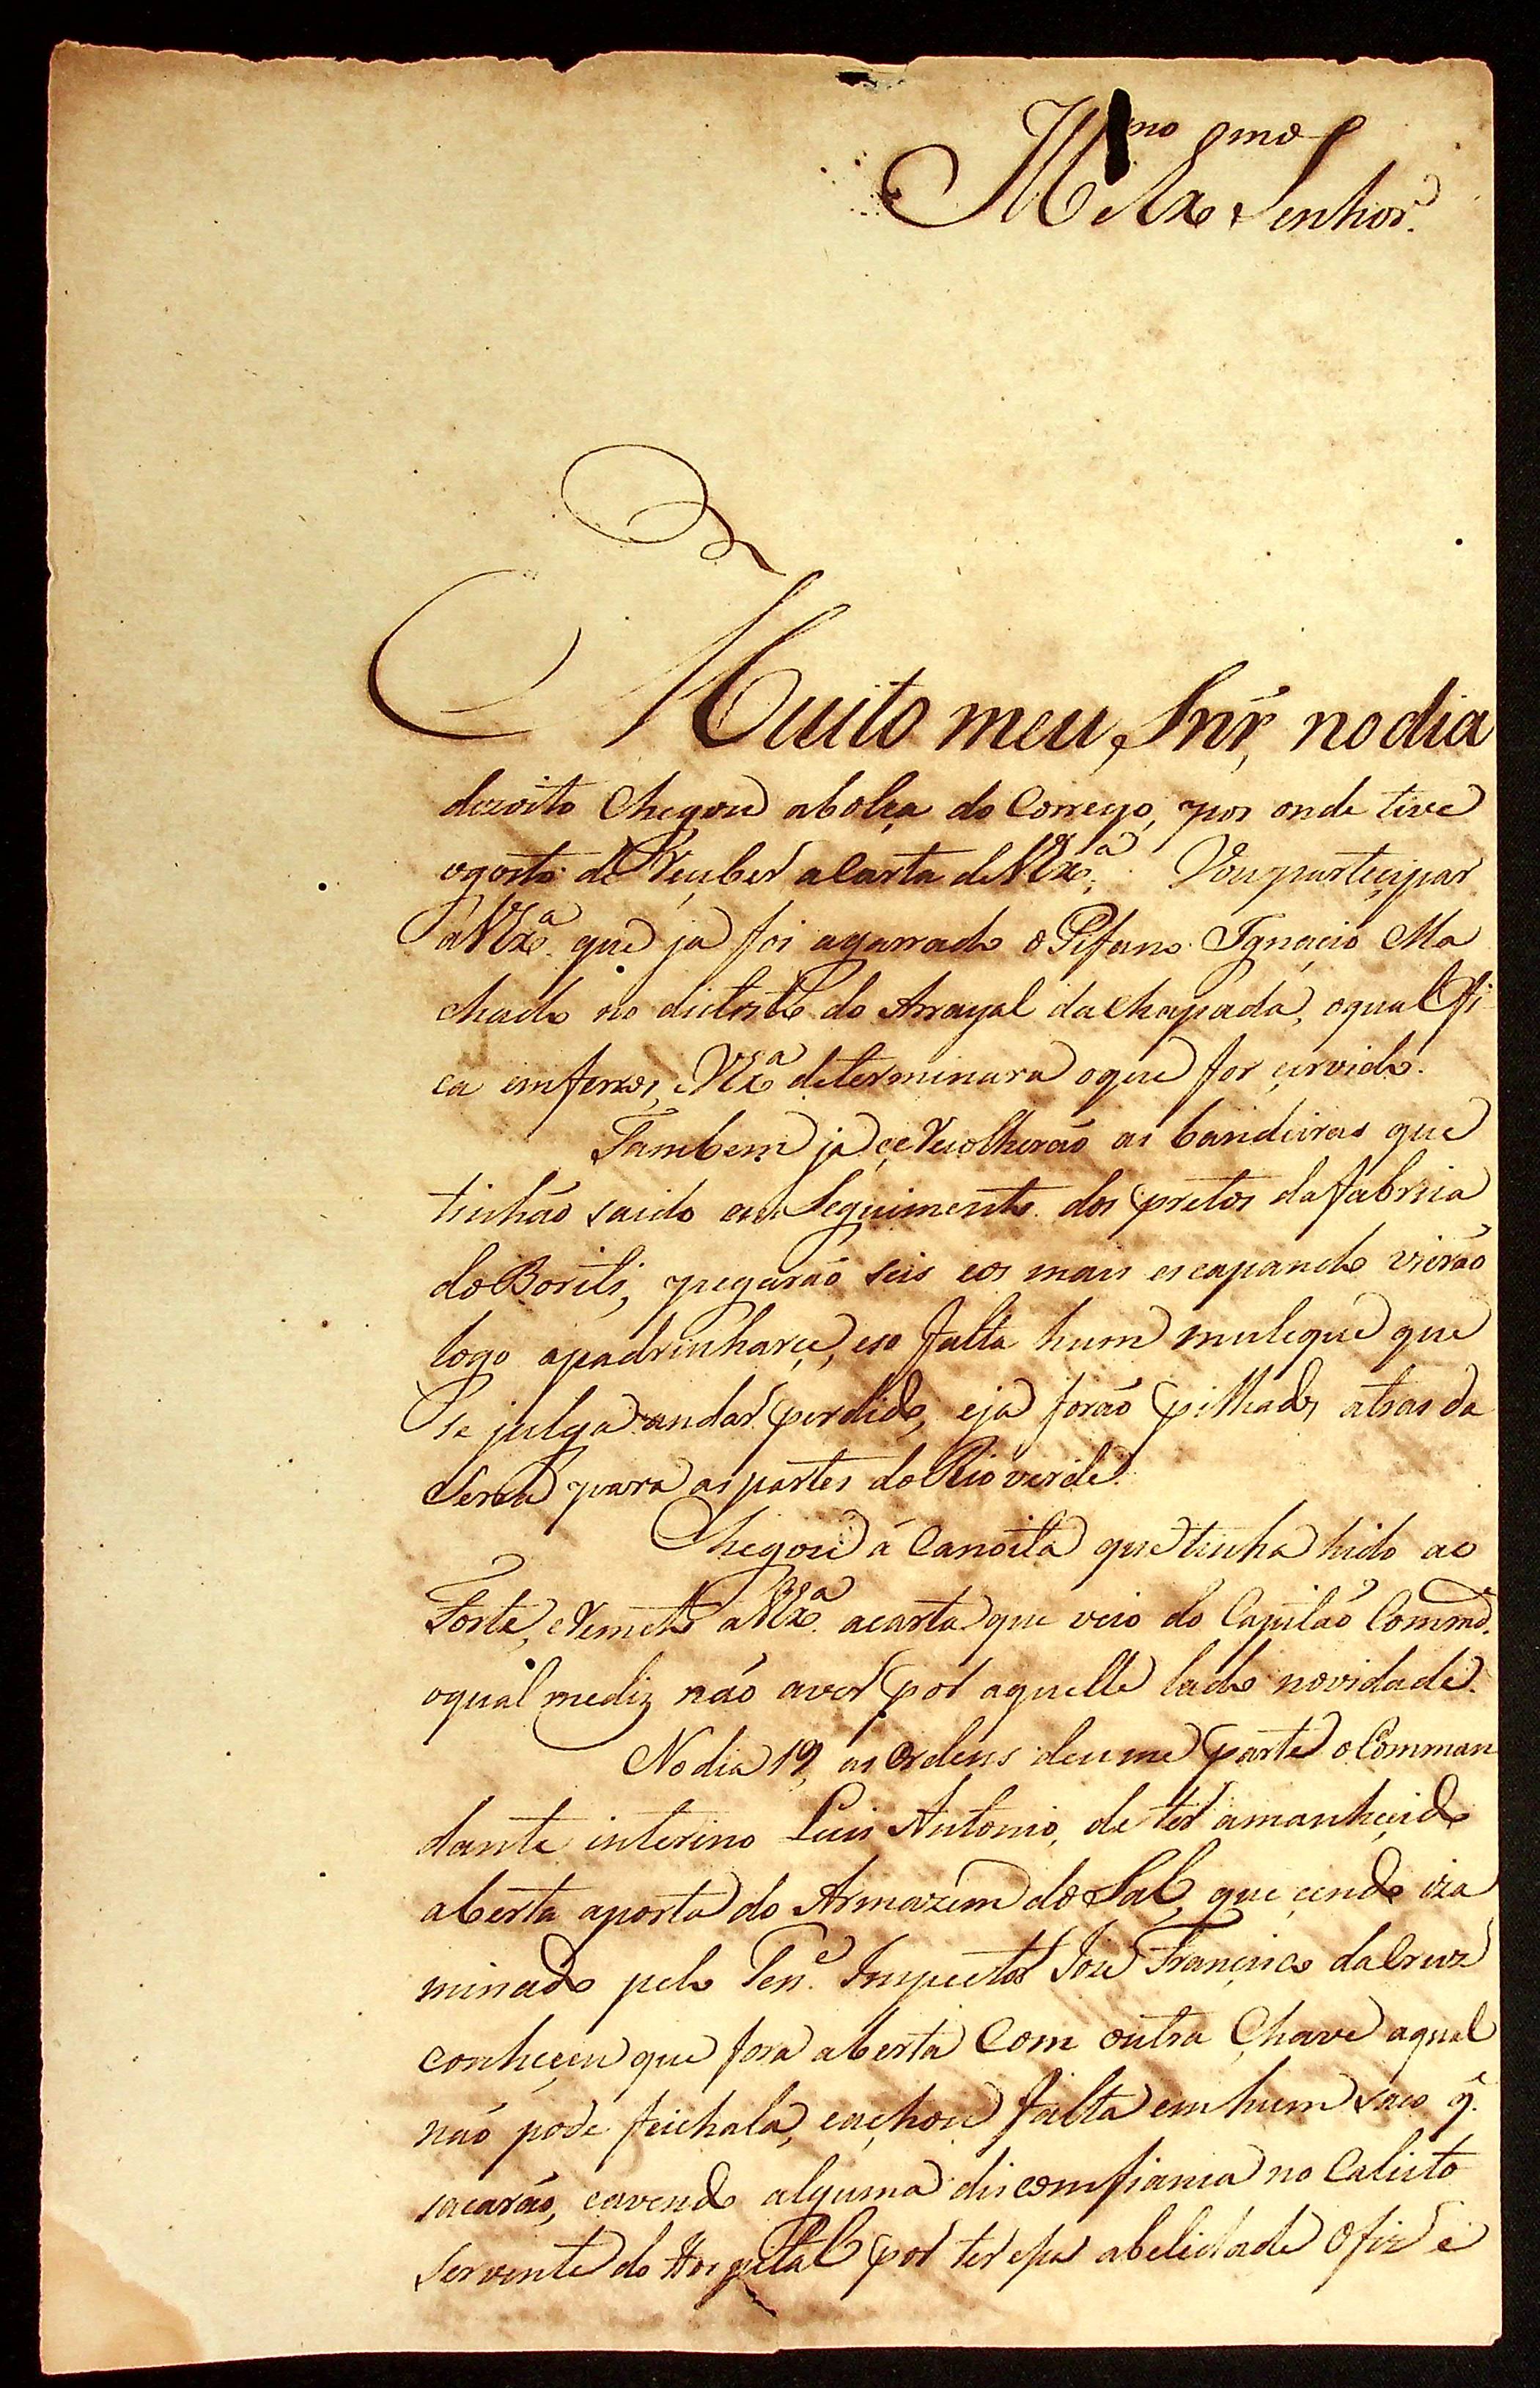 Illmo. e Exmo. Senhor.
Muito meu Snr, no dia
dezoito Chegou abolça do Correyo, por onde tive
ogosto de Reçuber aCarta deVExª. Vou partiçipar
aVExª que ja foi agarrado o Pifano Ignaçio Ma
chado no distrito do Arrayal daChapada, oqual fi
ca emferros, VExª determinara oque for çirvido.
Tambem ja çe Recolherão as bandeiras que
tinhão saido em Seguimento dos pretos dafabrica
do Boriti, pegarão seis eos mais escapando vierão
logo apadrinharçe, eso falta hum muleque que
se julga andar perdido, eja forão pilhados atras da
Serra para aspartes do Rio verde.
Chegou á Canoita que tinha hido ao
Forte, eRemeto aVExª acarta que veio do Capitão Commde.
oqual mediz não aver por aquelle lado novidade.
No dia 19, as Ordens deume parte o Comman
dante interino Luis Antonio, de ter amanheçido
aberta aporta do Armazem do Sal, que çendo iza
minado pelo Tene. Inspector Joze Françisco daCruz
conheçeu que fora aberta Com outra Chave aqual
não pode feichala, eachou falta em hum saco q.
sacarão, eavendo alguma discomfiança no Calisto
servente do Hospital por ter essa abelidade Ofiz e